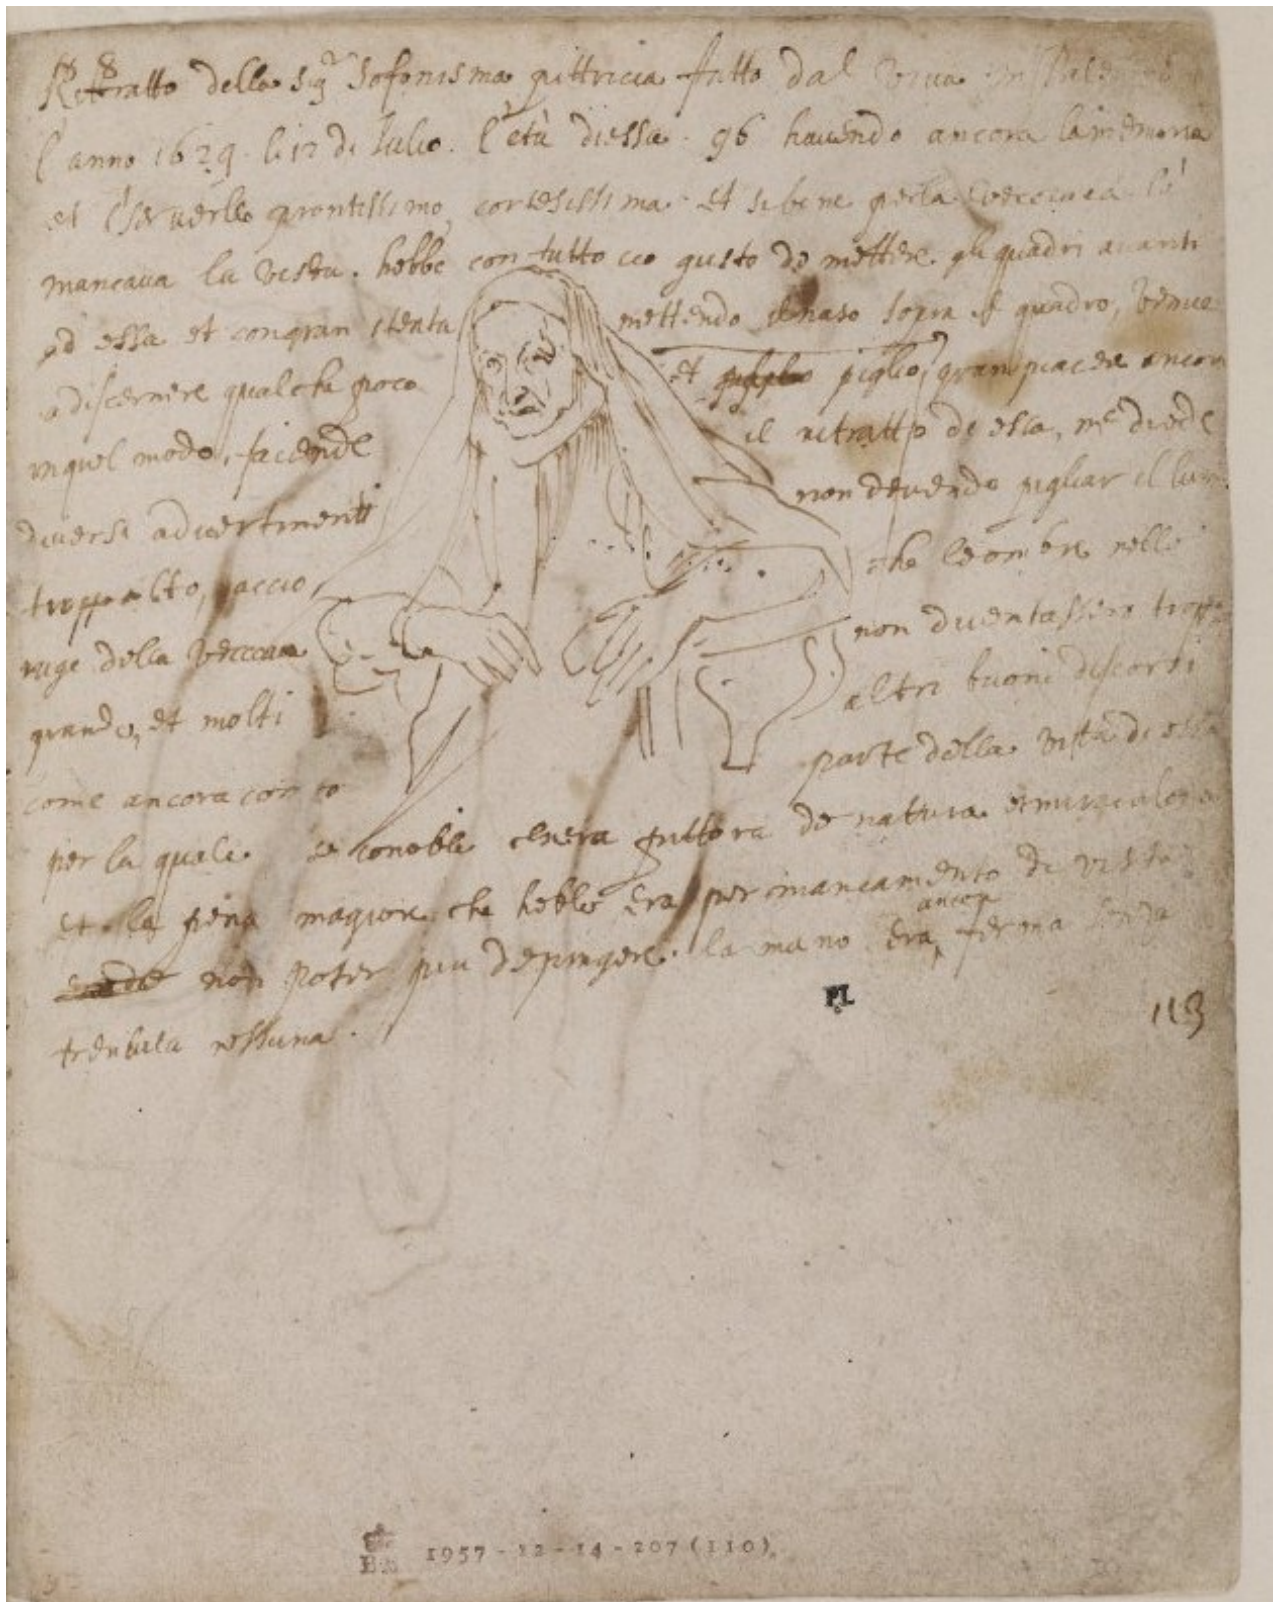 Rittratto della Sigra Sofonisma pittricia fatto dal vivo in Palermo
l'anno 1629 li 12 di Julio. l'età di essa . 96 havendo ancora la memoria
et il serverllo prontissimo, cortesissima. et sibene per la vecciaia la
mancava la vista. hebbe con tutto cio gusto de mettere gli quadri avanti
ad essa et con gran stenta mettendo il naso sopra il quadro, venne
a discernere qualche poco et piglio gran piacere ancora
in quel modo, facendo il ritratto de essa, me diede
diversi advertimenti non devendo pigliar il lume
troppo alto, accio che le ombre nelle
ruge della vecciaia non diventassero troppo
grande, et molti altri buoni discorsi
come ancora conto parte della vita di essa
per la quale se conobbe chera pittora de natura et miraculosa
et la pena magiore che hebbe era per mancamento di vista
non poter piu depingere. la mano era ancora ferma senza
tremula nessuna .
PL
113
1957-12-14-207 (110)